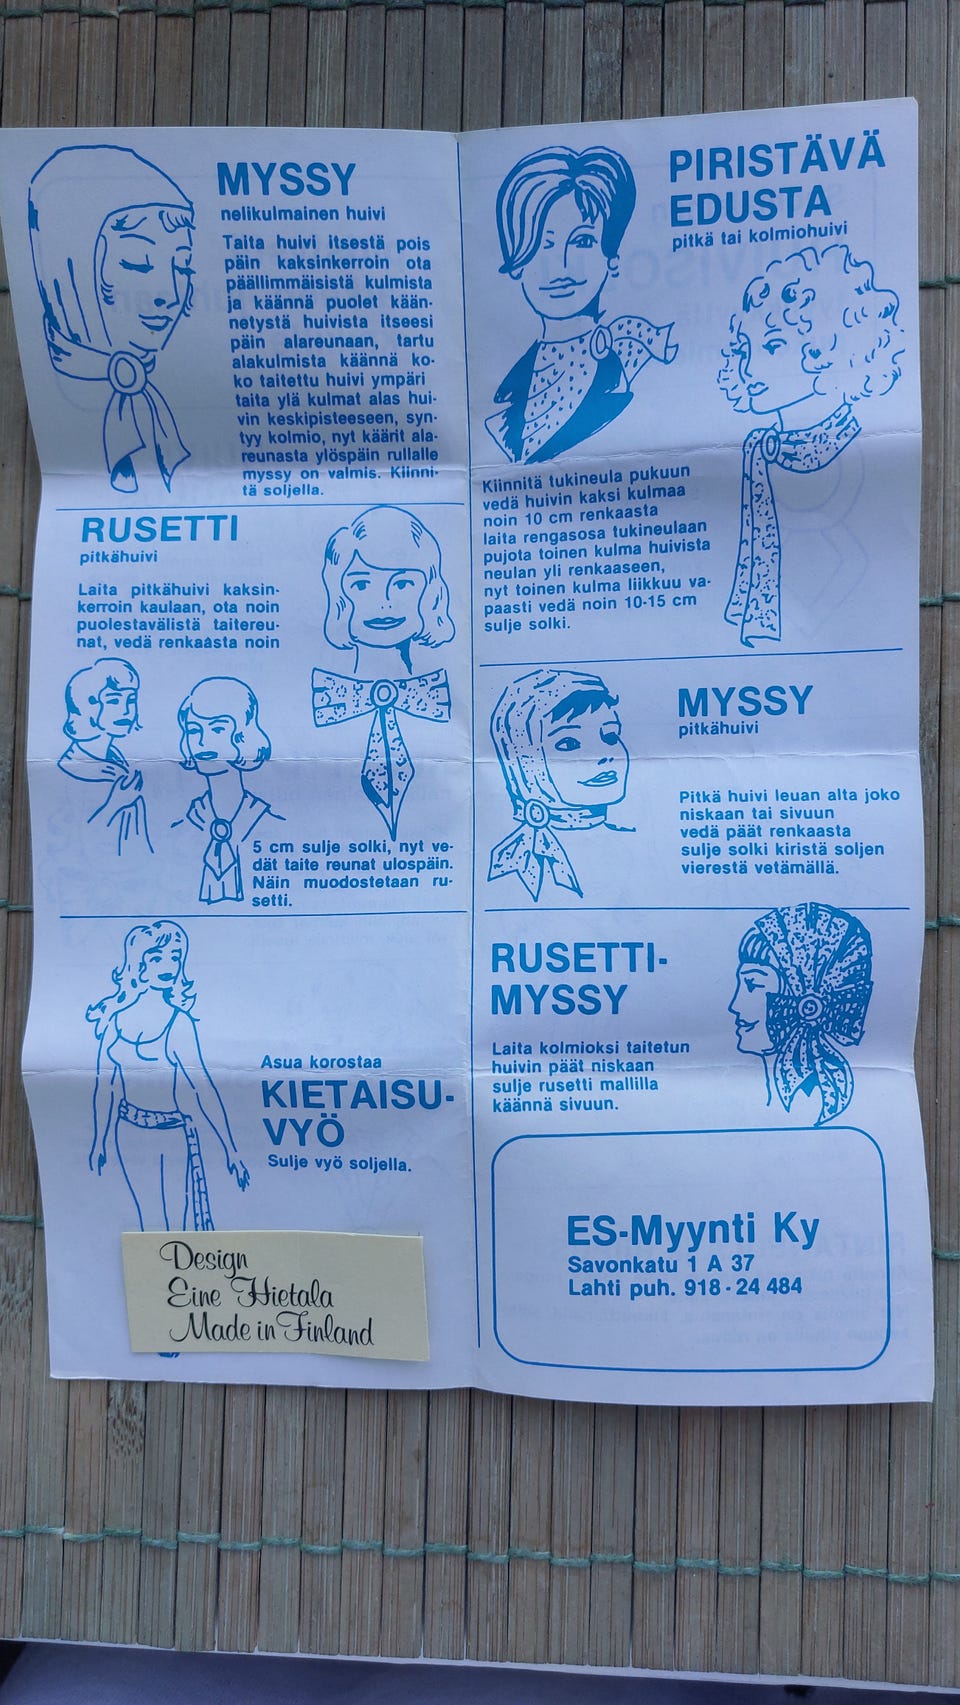 MYSSY
nelikulmainen huivi
Taita huivi itsestä pois
päin kaksinkerroin ota
päällimmäisistä kulmista
ja käännä puolet kään-
netystä huivista itseesi
päin alareunaan, tartu
alakulmista käännä ko-
ko taitettu huivi ympäri
taita ylä kulmat alas hui-
vin keskipisteeseen, syn-
tyy kolmio, nyt käärit ala-
reunasta ylöspäin rullalle
myssy on valmis. Kiinni-
tä soljella.
RUSETTI
pitkähuivi
Laita pitkähuivi kaksin-
kerroin kaulaan, ota noin
puolestavälistä taitereu-
nat, vedä renkaasta noin
5 cm sulje solki, nyt ve-
dät taite reunat ulospäin.
Näin muodostetaan ru-
setti.
Asua korostaa
KIETAISU-
VYÖ
Sulje vyö soljella.
Design
Eine Hietala
Made in Finland
PIRISTÄVÄ
EDUSTA
pitkä tai kolmiohuivi
Kiinnitä tukineula pukuun
vedä huivin kaksi kulmaa
noin 10 cm renkaasta
laita rengasosa tukineulaan
pujota toinen kulma huivista
neulan yli renkaaseen,
nyt toinen kulma liikkuu va-
paasti vedä noin 10-15 cm
sulje solki.
MYSSY
pitkähuivi
Pitkä huivi leuan alta joko
niskaan tai sivuun
vedä päät renkaasta
sulje solki kiristä soljen
vierestä vetämällä.
RUSETTI-
MYSSY
Laita kolmioksi taitetun
huivin päät niskaan
sulje rusetti mallilla
käännä sivuun.
ES-Myynti Ky
Savonkatu 1 A 37
Lahti puh. 918-24 484